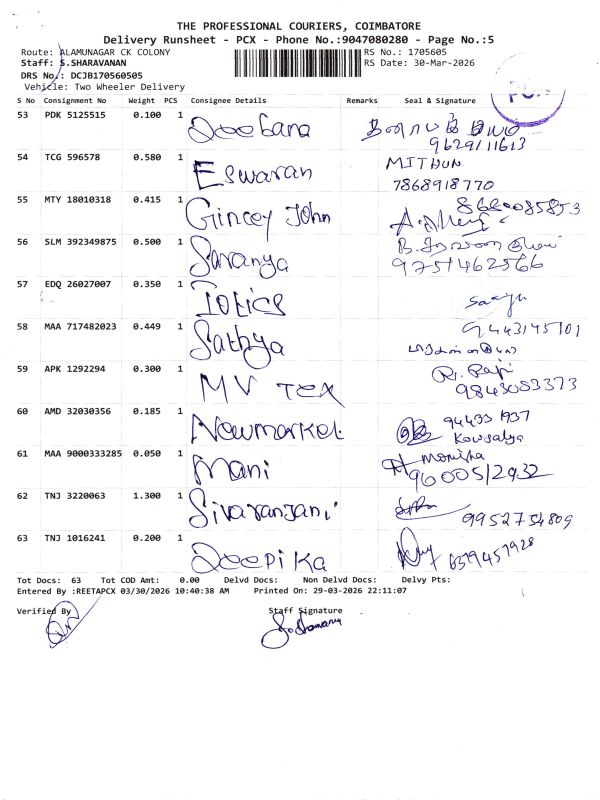 THE PROFESSIONAL COURIERS, COIMBATORE
Delivery Runsheet - PCX - Phone No.:9047080280 - Page No.:5
Route: ALAMUNAGAR CK COLONY RS No.: 1705605
Staff: S.SHARAVANAN RS Date: 30-Mar-2026
DRS No.: DCJB170560505
Vehicle: Two Wheeler Delivery
S No Consignment No Weight PCS Consignee Details Remarks Seal & Signature
53 PDK 5125515 0.100 1 Deebana
9629111613
54 TCG 596578 0.580 1 Eswaran MITHUN
7868918770
55 MTY 18010318 0.415 1 Gincey John 8680085853
56 SLM 392349875 0.500 1 Saranya
9751462566
57 EDQ 26027007 0.350 1
9443145701
58 MAA 717482023 0.449 1 Sathya
59 APK 1292294 0.300 1 MV TEX R. Papi
9843083373
60 AMD 32030356 0.185 1 Newmarket 94433 1937
Kowsalya
61 MAA 9000333285 0.050 1 Mani Monisha
9600512932
62 TNJ 3220063 1.300 1 Sivaranjani
9952754809
63 TNJ 1016241 0.200 1 Deepika 6379457928
Tot Docs: 63 Tot COD Amt: 0.00 Delvd Docs: Non Delvd Docs: Delvy Pts:
Entered By :REETAPCX 03/30/2026 10:40:38 AM Printed On: 29-03-2026 22:11:07
Verified By Staff Signature